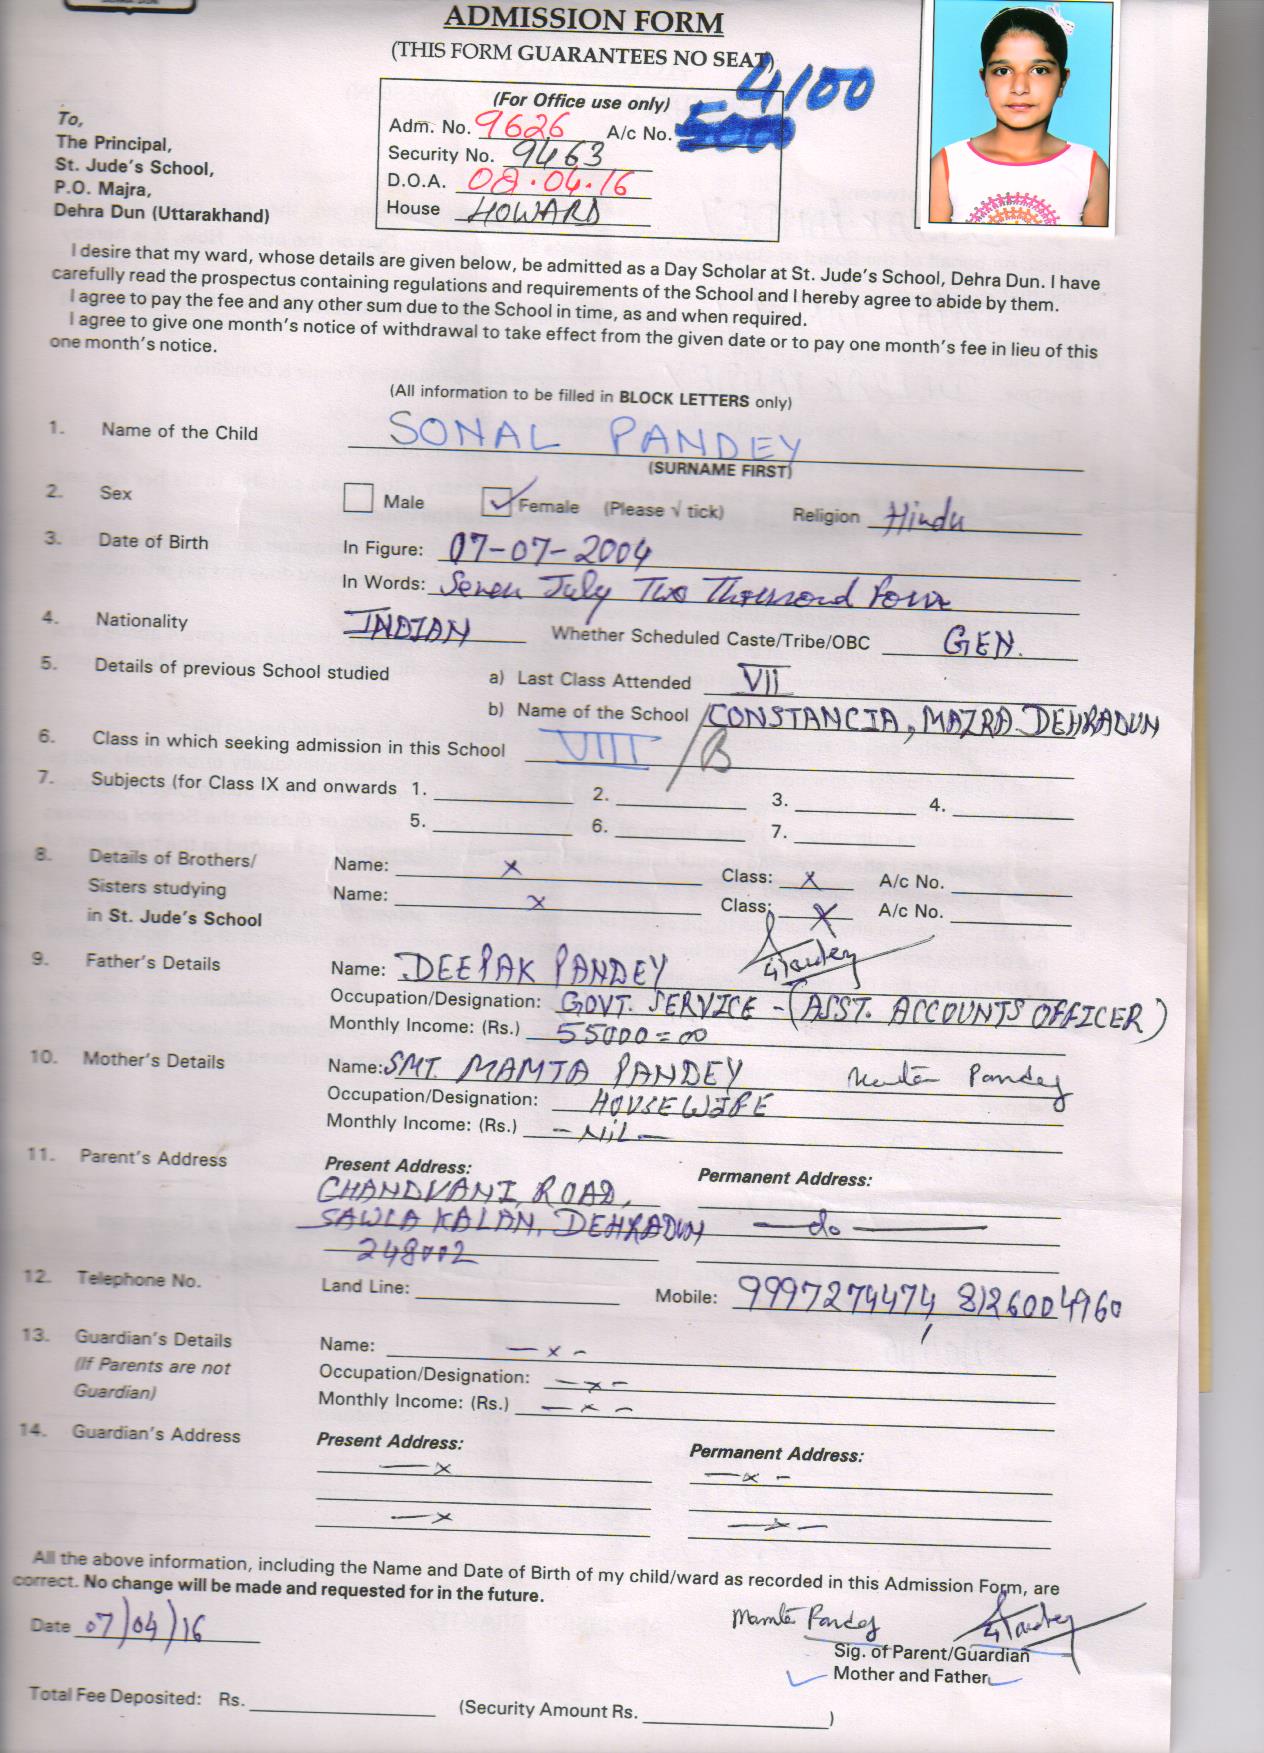 ADMISSION FORM
(THIS FORM GUARANTEES NO SEAT)
4100
(For Office use only)
Adm. No. 9626 A/c No.
Security No. 9463
D.O.A. 08.04.16
House HOWARD
To,
The Principal,
St. Jude's School,
P.O. Majra,
Dehra Dun (Uttarakhand)
I desire that my ward, whose details are given below, be admitted as a Day Scholar at St. Jude's School, Dehra Dun. I have
carefully read the prospectus containing regulations and requirements of the School and I hereby agree to abide by them.
I agree to pay the fee and any other sum due to the School in time, as and when required.
I agree to give one month's notice of withdrawal to take effect from the given date or to pay one month's fee in lieu of this
one month's notice.
(All information to be filled in BLOCK LETTERS only)
1. Name of the Child SONAL PANDEY
(SURNAME FIRST)
2. Sex Male ✓ Female (Please √ tick) Religion Hindu
3. Date of Birth In Figure: 07-07-2004
In Words: Seven July Two Thousand Four
4. Nationality INDIAN Whether Scheduled Caste/Tribe/OBC GEN.
5. Details of previous School studied a) Last Class Attended VII
b) Name of the School CONSTANCIA, MAZRA DEHRADUN
6. Class in which seeking admission in this School VIII / B
7. Subjects (for Class IX and onwards 1. 2. 3. 4.
5. 6. 7.
8. Details of Brothers/ Name: x Class: x A/c No.
Sisters studying Name: x Class: x A/c No.
in St. Jude's School
9. Father's Details Name: DEEPAK PANDEY
Occupation/Designation: GOVT. SERVICE - (ASST. ACCOUNTS OFFICER)
Monthly Income: (Rs.) 55000=00
10. Mother's Details Name: SMT. MAMTA PANDEY Mamta Pandey
Occupation/Designation: HOUSE WIFE
Monthly Income: (Rs.) - Nil -
11. Parent's Address Present Address: Permanent Address:
CHANDVANI ROAD,
SAWLA KALAN, DEHRADUN — do —
248002
12. Telephone No. Land Line: Mobile: 9997279474, 8126004960
13. Guardian's Details Name: — x -
(If Parents are not Occupation/Designation: — x -
Guardian) Monthly Income: (Rs.) — x -
14. Guardian's Address Present Address: Permanent Address:
— x — x -
— x — x —
All the above information, including the Name and Date of Birth of my child/ward as recorded in this Admission Form, are
correct. No change will be made and requested for in the future.
Date 07/04/16 Mamta Pandey
Sig. of Parent/Guardian
Mother and Father
Total Fee Deposited: Rs. (Security Amount Rs. )